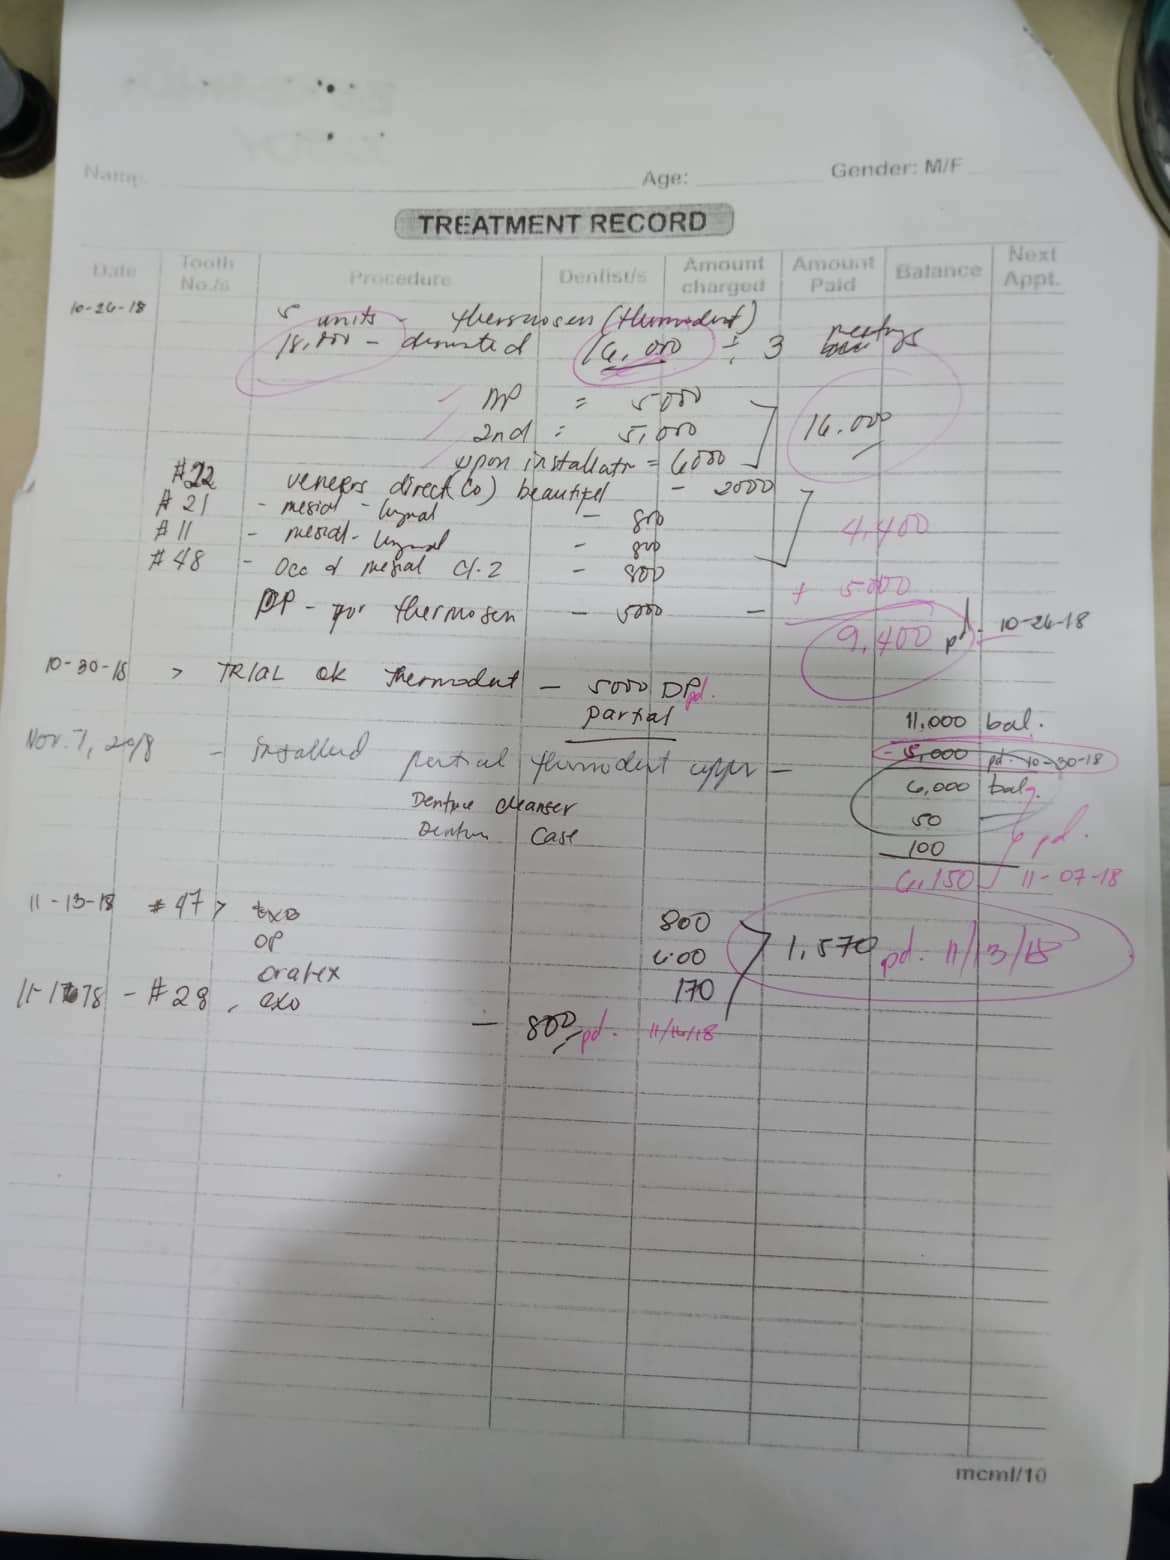 Name: Age: Gender: M/F
TREATMENT RECORD
Date Tooth No./s Procedure Dentist/s Amount charged Amount Paid Balance Next Appt.
10-26-18 5 units - thermosen (thermodent)
18,000 - 16,000 ÷ 3
DP = 5000
2nd = 5,000 16.000
upon installatn = 6000
#22 veneers direct (Co) beautifil - 2000
# 21 - mesial - lingual - 800 4,400
# 11 - mesial - lingual - 800
# 48 - Occ d mesial cl. 2 - 800
+ 5000
DP - for thermosen - 5000 -
9,400 pd. 10-26-18
10-30-18 > TRIAL ok thermodent - 5000 DP pd.
partial 11.000 bal.
Nov. 7, 2018 - installed partial thermodent upper - - 5,000 pd. 10-30-18
6,000 bal.
Denture cleanser 50
Denture Case 100 pd.
6,150 11-07-18
11-13-18 # 47 > exo 800
OP 600 1,570 pd. 11/13/18
orarex 170
# 28, exo
- 800 pd. 11/16/18
mcml/10